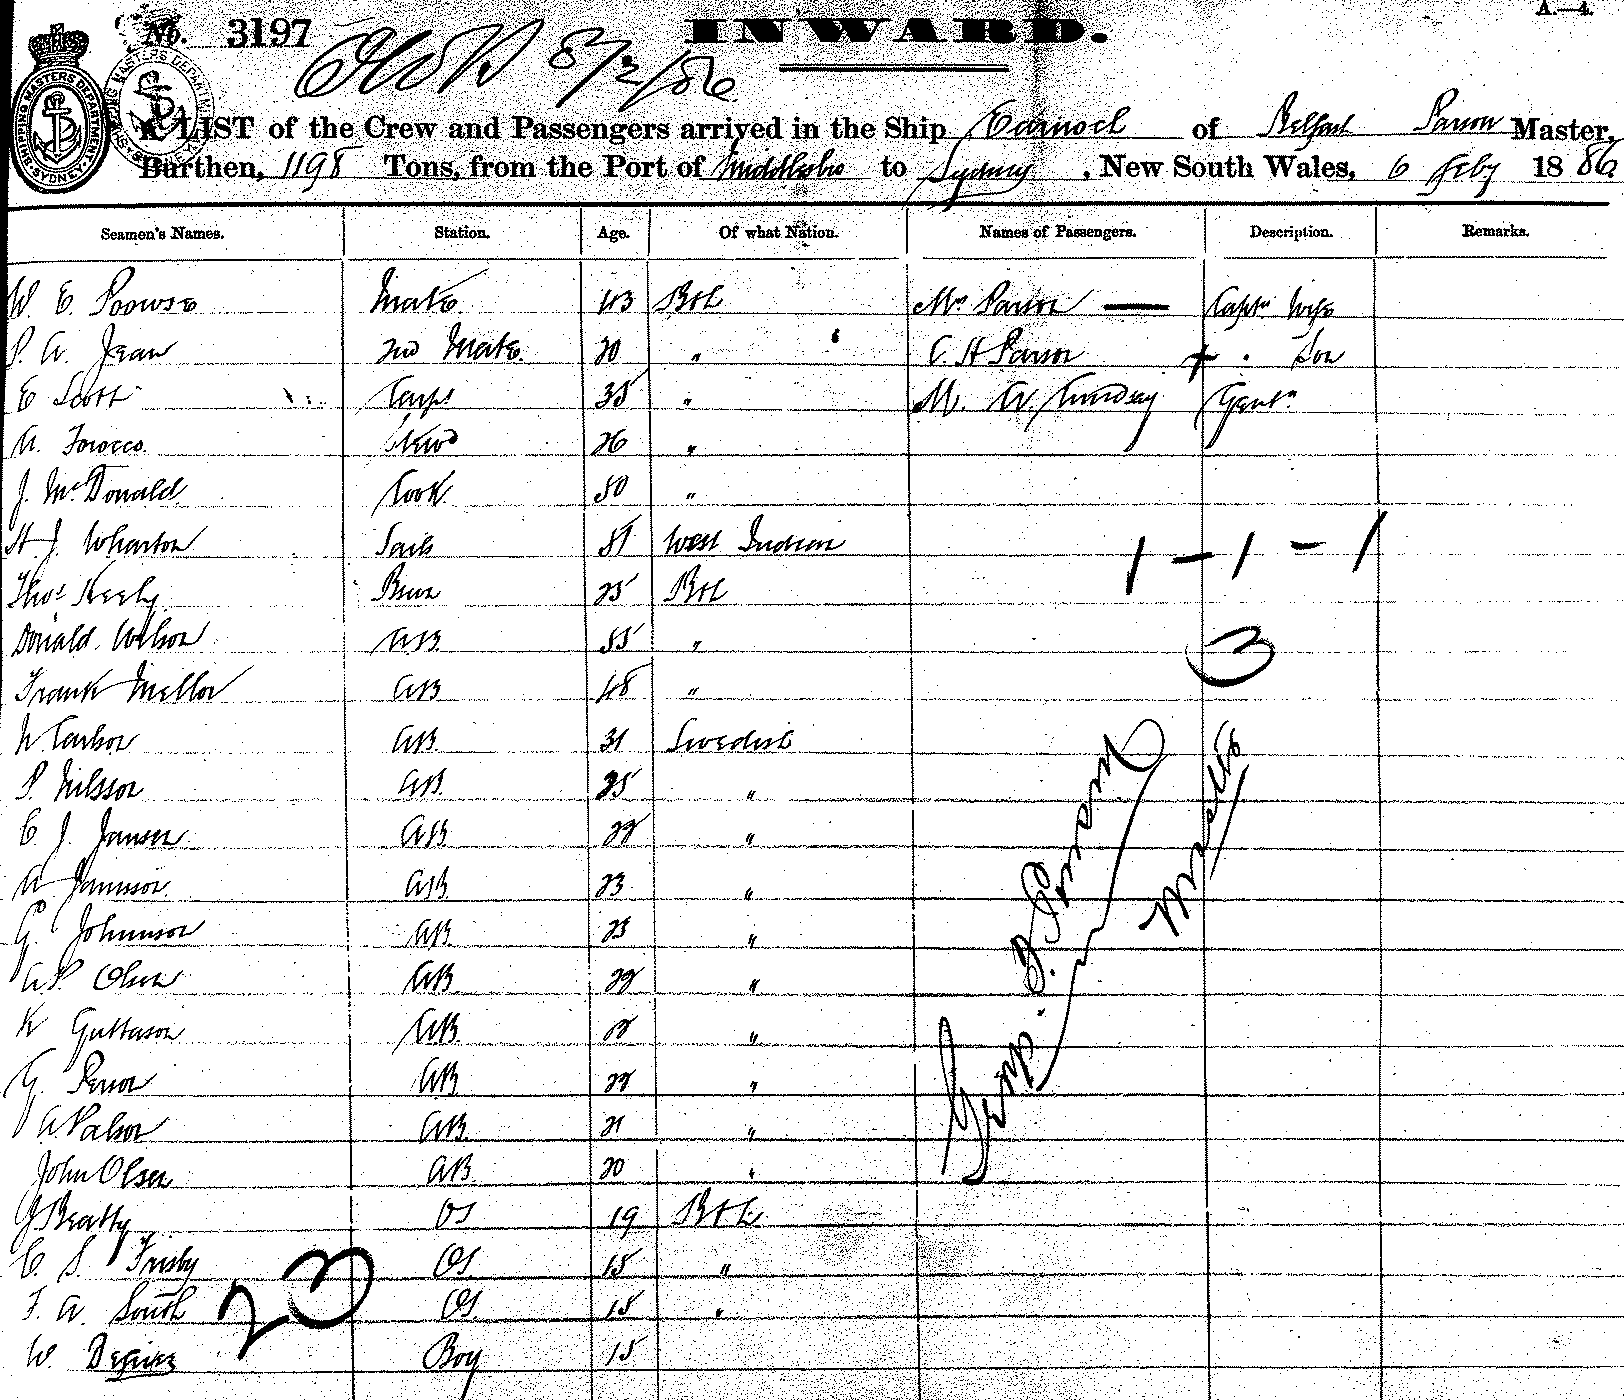 A.—4.
No. 3197 INWARD.
8/2/86
SHIPPING MASTERS DEPARTMENT SYDNEY
A LIST of the Crew and Passengers arrived in the Ship Earnock of Belfast Parson Master,
Burthen, 1198 Tons, from the Port of Middlesbro to Sydney, New South Wales, 6 Feby 1886
Seamen's Names. Station. Age. Of what Nation. Names of Passengers. Description. Remarks.
W. E. Mate 43 Brit Mrs Parson — Capts Wife
P. A. Jean 2nd Mate 20 " C. H Parson + " Son
E Scott Carpr 35 " M. A. Gent
A. Forocco Stewd 26 "
J. McDonald Cook 50 "
H. J. Wharton Sails 51 West Indian 1 – 1 – 1
Thos Keely Bosn 25 Brit
Donald Wilson AB 55 " 3
Frank Mellor AB 48 "
N Carlson AB 31 Swedish
P. Nilsson AB 25 "
C. J. Jansen AB 22 "
A AB 23 "
G. Johnnson AB 23 "
A. P. Olsen AB 22 "
K Guttason AB "
G. AB 22 "
A. AB 21 "
John Olsen AB 20 "
J Beatty OS 19 Brit
C. S. Frisby OS 15 "
F. A. South OS 15 "
23
W. Boy 15
Master